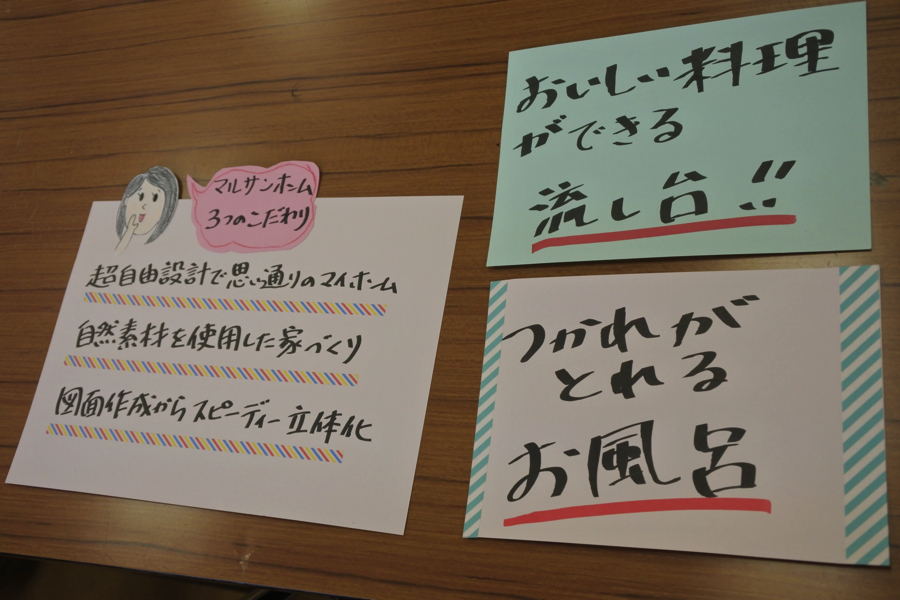 マルサンホーム
3つのこだわり
超自由設計で思い通りのマイホーム
自然素材を使用した家づくり
図面作成からスピーディー立体化
おいしい料理
ができる
流し台!!
つかれが
とれる
お風呂